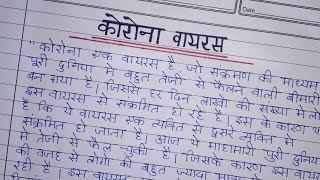 Date
कोरोना वायरस
"कोरोना एक वायरस है जो संक्रमण की माध्यम
पूरी दुनिया में बहुत तेजी से फैलने वाली बीमारी
बन गया है। जिससे हर दिन लाखों की संख्या में लो
इस वायरस से संक्रमित हो रहे है। इस के कारण य
है कि ये वायरस एक व्यक्ति से दूसरे व्यक्ति में
संक्रमित हो जाता है। आज ये महामारी पुरी दुनिया
में तेजी से फैल चुकी है। जिसके कारण इस वाय
की वजह से लोगो की बहुत ज्यादा
रही है। इस वायरस